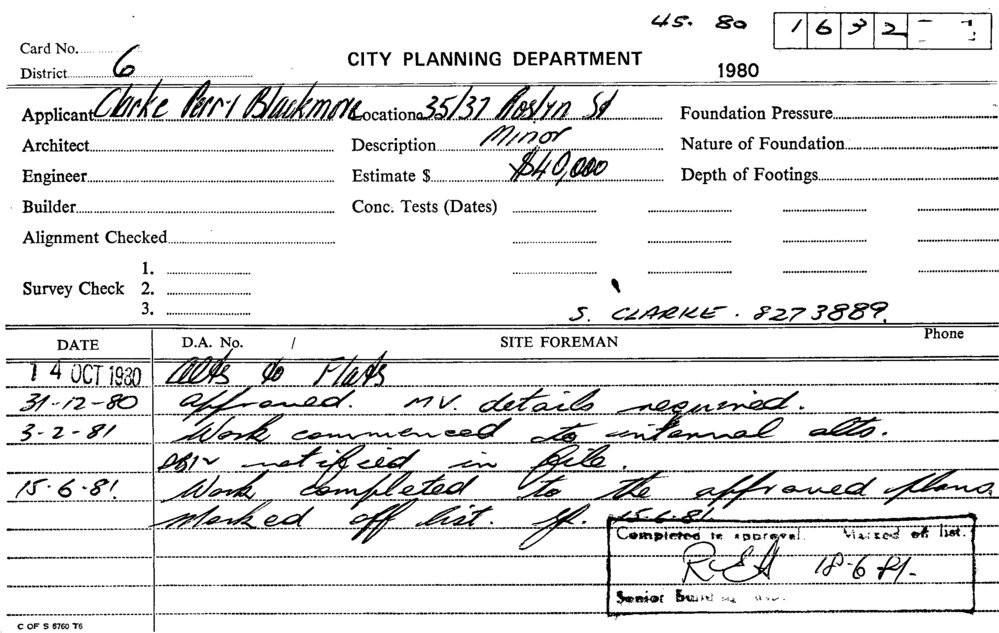 45. 80 1632
Card No.
District 6
CITY PLANNING DEPARTMENT
1980
Applicant Clarke Perry Blackmore Location 35/37 Roslyn St Foundation Pressure
Architect Description Minor Nature of Foundation
Engineer Estimate $ $40,000 Depth of Footings
Builder Conc. Tests (Dates)
Alignment Checked
Survey Check 1.
2.
3.
S. CLARKE. 8273889.
DATE D.A. No. / SITE FOREMAN Phone
14 OCT 1980 Alts to Flats
31-12-80 approved. MV. details required.
3-2-81 Work commenced to internal alts.
notified in file.
15.6.81. Work completed to the approved plans
Marked off list. 15.6.81.
Completed to approval. Marked off list.
18-6-81.
Senior
C OF S 6760 T6